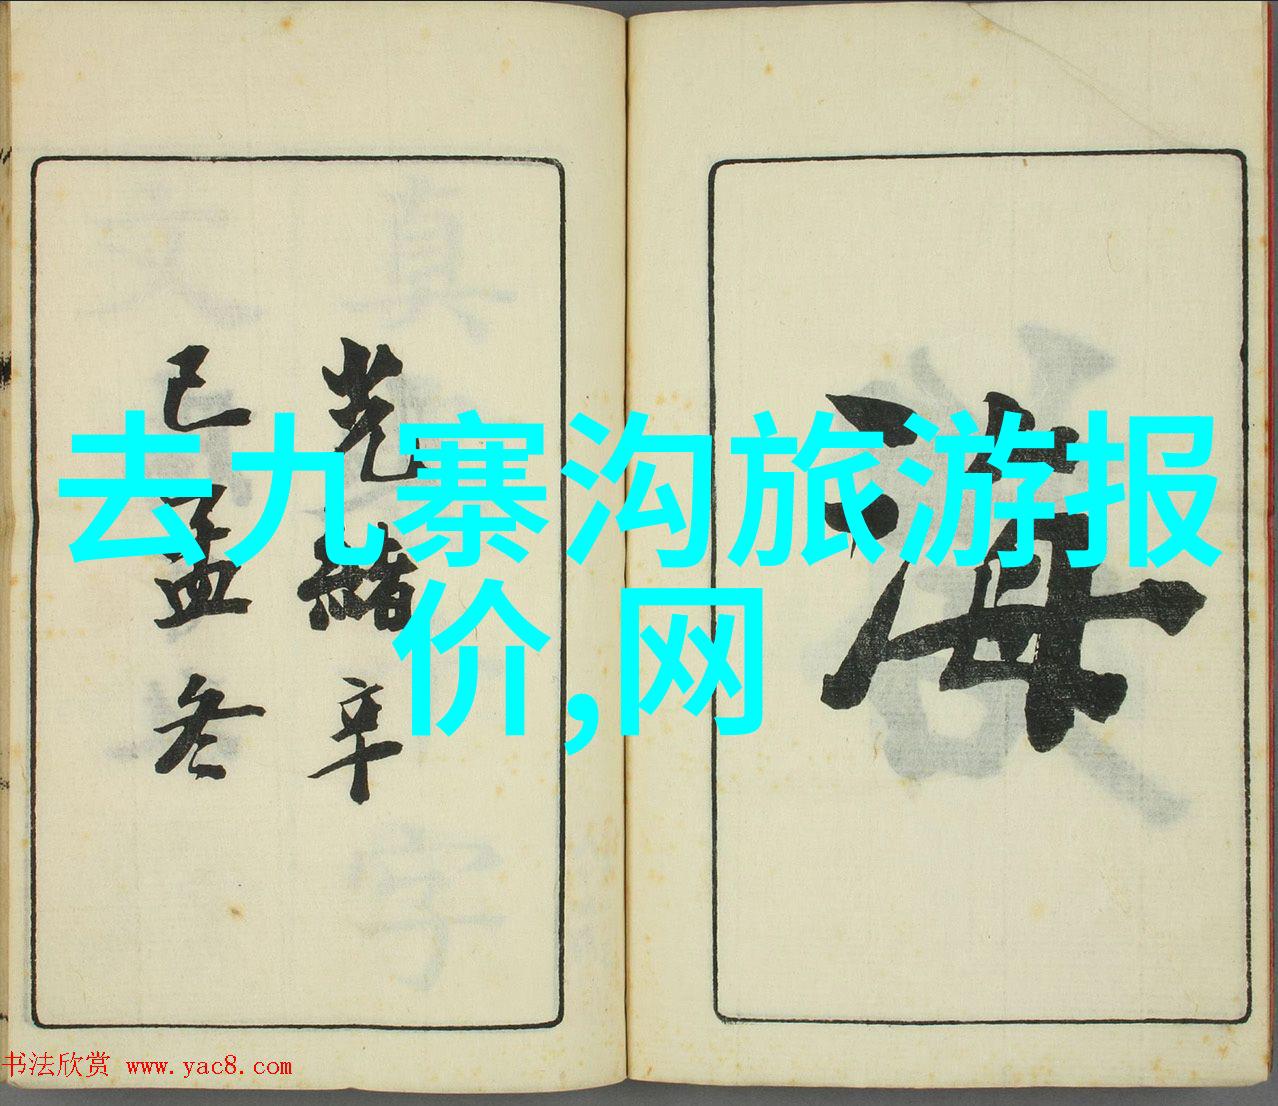 去九寨沟旅游报
价,网
海
光緒辛
巳孟冬
书法欣赏 www.yac8.com